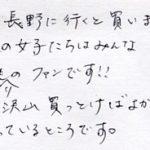 長野に行くと買いま
の女子たちはみんな
のファンです!!
沢山買っとけばよか
っているところです。